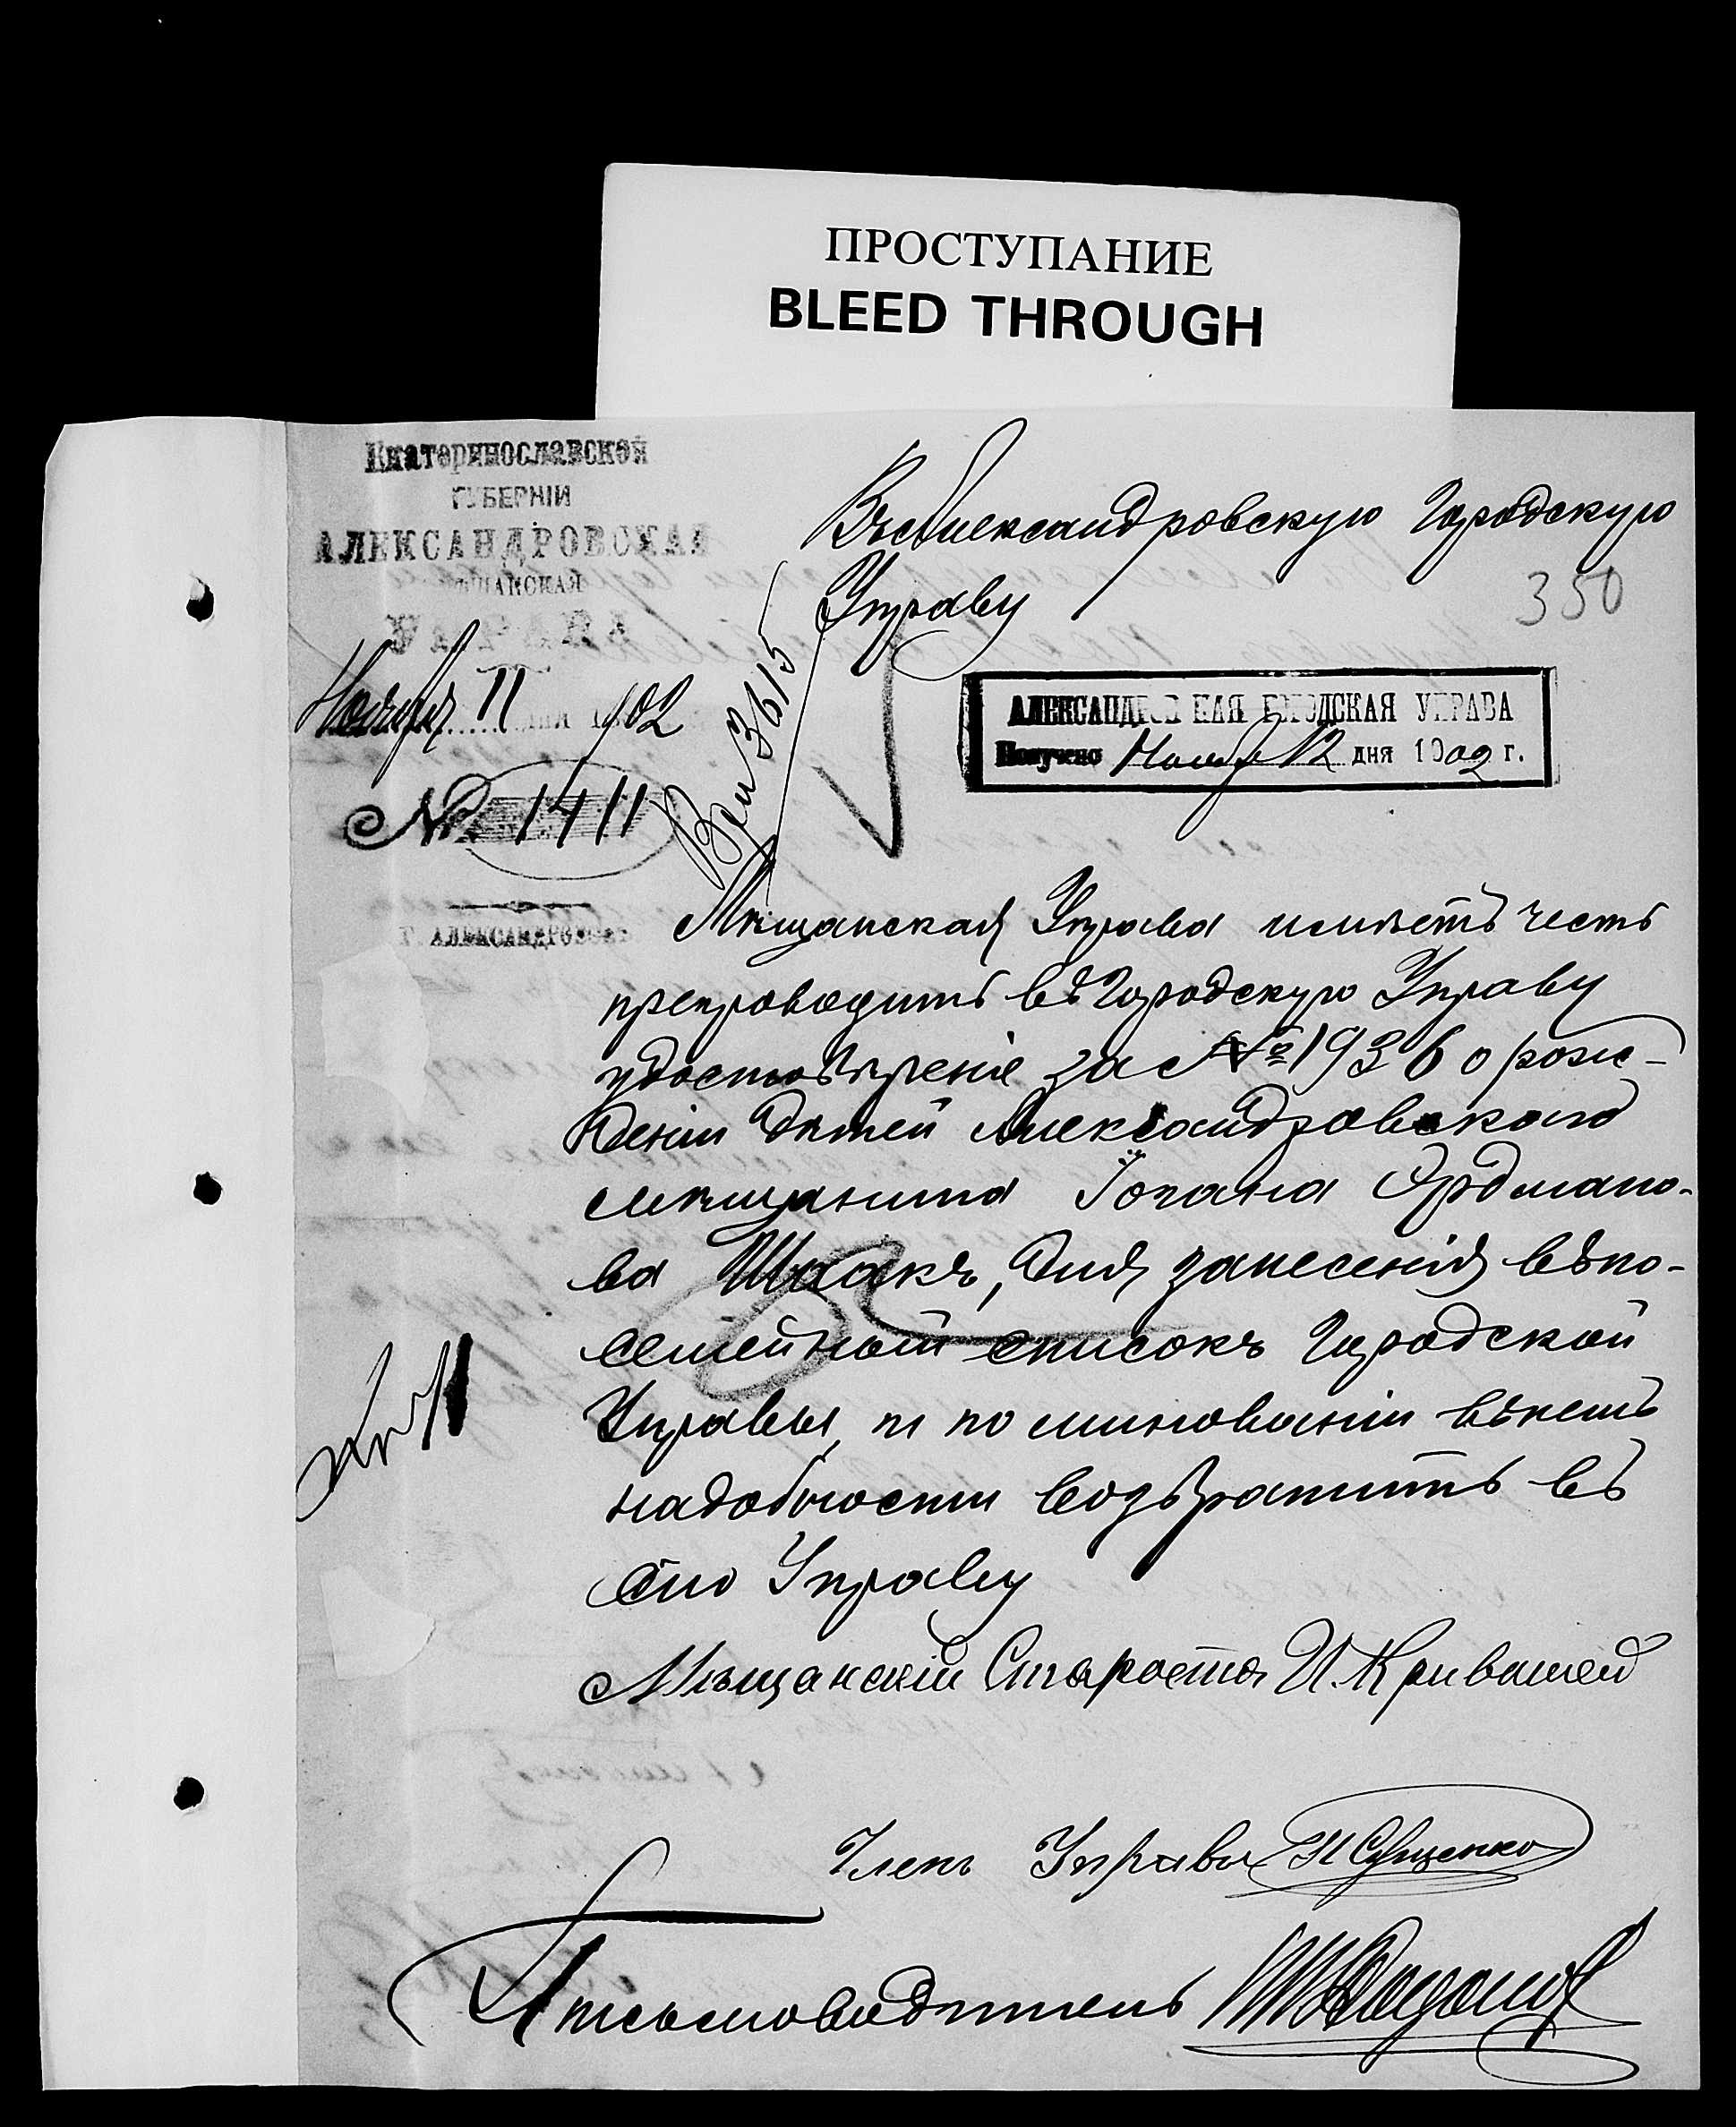 ПРОСТУПАНИЕ
BLEED THROUGH
Екатеринославской
ГУБЕРНІИ
АЛЕКСАНДРОВСКАЯ
МѢЩАНСКАЯ
УПРАВА
Ноября 11 дня 1902
№ 1411
г. АЛЕКСАНДРОВСКЪ
Въ Александровскую Городскую
Управу
350
Вх 3615
АЛЕКСАНДРОВСКАЯ ГОРОДСКАЯ УПРАВА
Получено Нояб 12 дня 1902 г.
Мѣщанская Управа имѣетъ честь
препроводить въ Городскую Управу
удостовѣреніе за № 1936 о рож-
деніи дѣтей Александровскаго
мѣщанина Іогана Ордмано-
ва Шаакъ, для занесенія въ по-
семейный списокъ Городской
Управы, и по минованіи въ немъ
надобности возвратить въ
сію Управу
Мѣщанскій Староста И. Кривошей
Членъ Управы
Письмоводитель